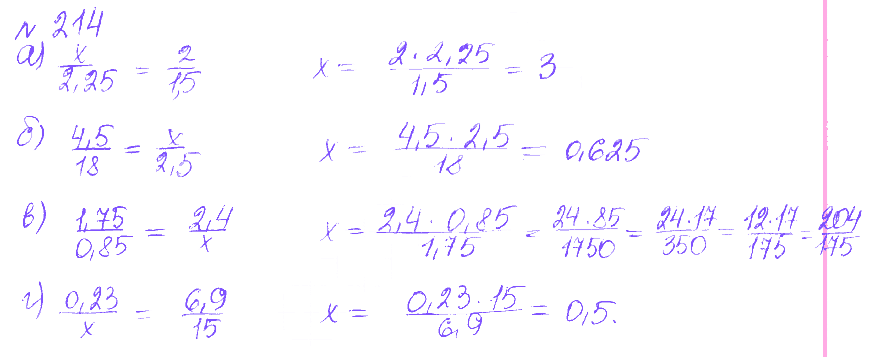 № 214
а) x/2,25 = 2/1,5 x = 2·2,25/1,5 = 3
б) 4,5/18 = x/2,5 x = 4,5·2,5/18 = 0,625
в) 1,75/0,85 = 2,4/x x = 2,4·0,85/1,75 = 24·85/1750 = 24·17/350 = 12·17/175 = 204/175
г) 0,23/x = 6,9/15 x = 0,23·15/6,9 = 0,5.